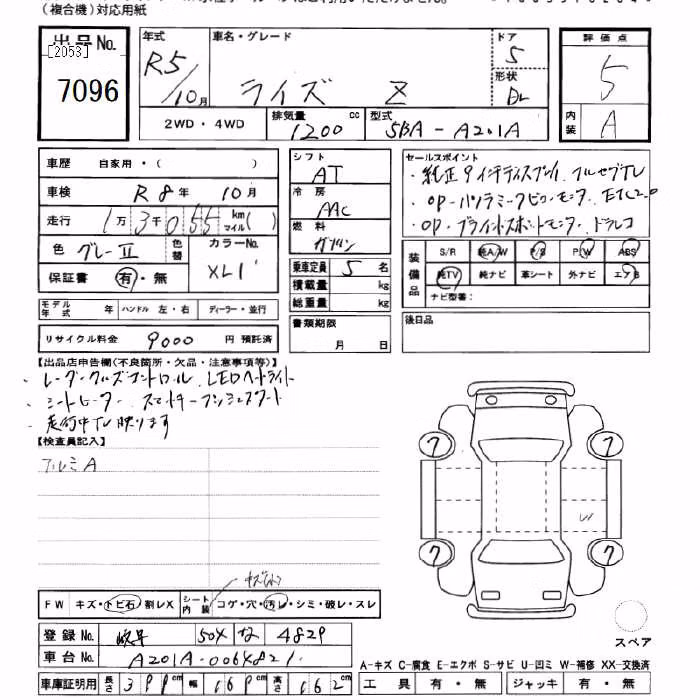 (複合機)対応用紙
出品No.
[2053]
7096
年式
R5/10月
車名・グレード
ライズ Z
ドア
5
形状
評価点
5
内装
A
2WD・4WD
排気量
1200 cc
型式
5BA-A201A
車歴 自家用・( )
車検 R8年 10月
走行 1万3千055 km マイル( )
色 グレーⅡ 色替 カラーNo. XL1
保証書 有・無
モデル年式 年 ハンドル 左・右 ディーラー・並行
リサイクル料金 9000 円 預託済
シフト
AT
冷房
AAC
燃料
ガソリン
乗車定員 5 名
積載量 kg
総重量 kg
書類期限
月 日
セールスポイント
・純正9インチディスプレイ フルセグTV
・OP-パノラミックビューモニター ETC2.0
・OP-ブラインドスポットモニター ドラレコ
装備品
S/R 純A/W P/S P/W ABS
純TV 純ナビ 革シート 外ナビ エアB
ナビ型番:
後日品
【出品店申告欄(不良箇所・欠品・注意事項等)】
・レーダークルーズコントロール LEDヘッドライト
・シートヒーター スマートキープッシュスタート
・走行中TV映ります
【検査員記入】
アルミA
7 7
7 7
W
FW キズ・トビ石・割レX シート内装 コゲ・穴・汚レ・シミ・破レ・スレ
登録No. 岐阜 504 な 4829
車台No. A201A-0064821
車庫証明用 長さ 399cm 幅 169cm 高さ 162cm
スペア
A-キズ C-腐食 E-エクボ S-サビ U-凹ミ W-補修 XX-交換済
工具 有・無 ジャッキ 有・無